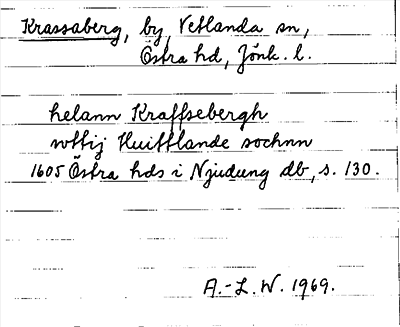 Krassaberg, by, Vetlanda sn,
Östra hd, Jönk. l.
helann Kraffsebergh
wttij Huittlande sochnn
1605 Östra hds i Njudung db, s. 130.
A.-L. W. 1969.